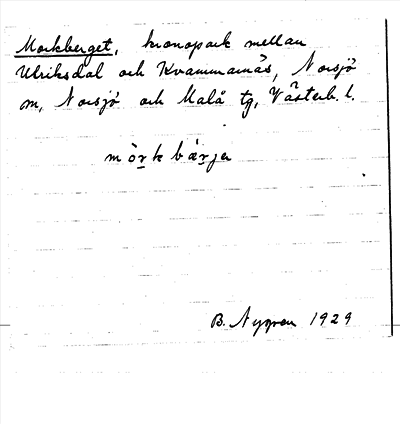 Morkberget, kronopark mellan
Ulriksdal och Kvammarnäs, Norsjö
sn, Norsjö och Malå tg, Västerb. l.
mörk bärjer
B. Nygren 1929